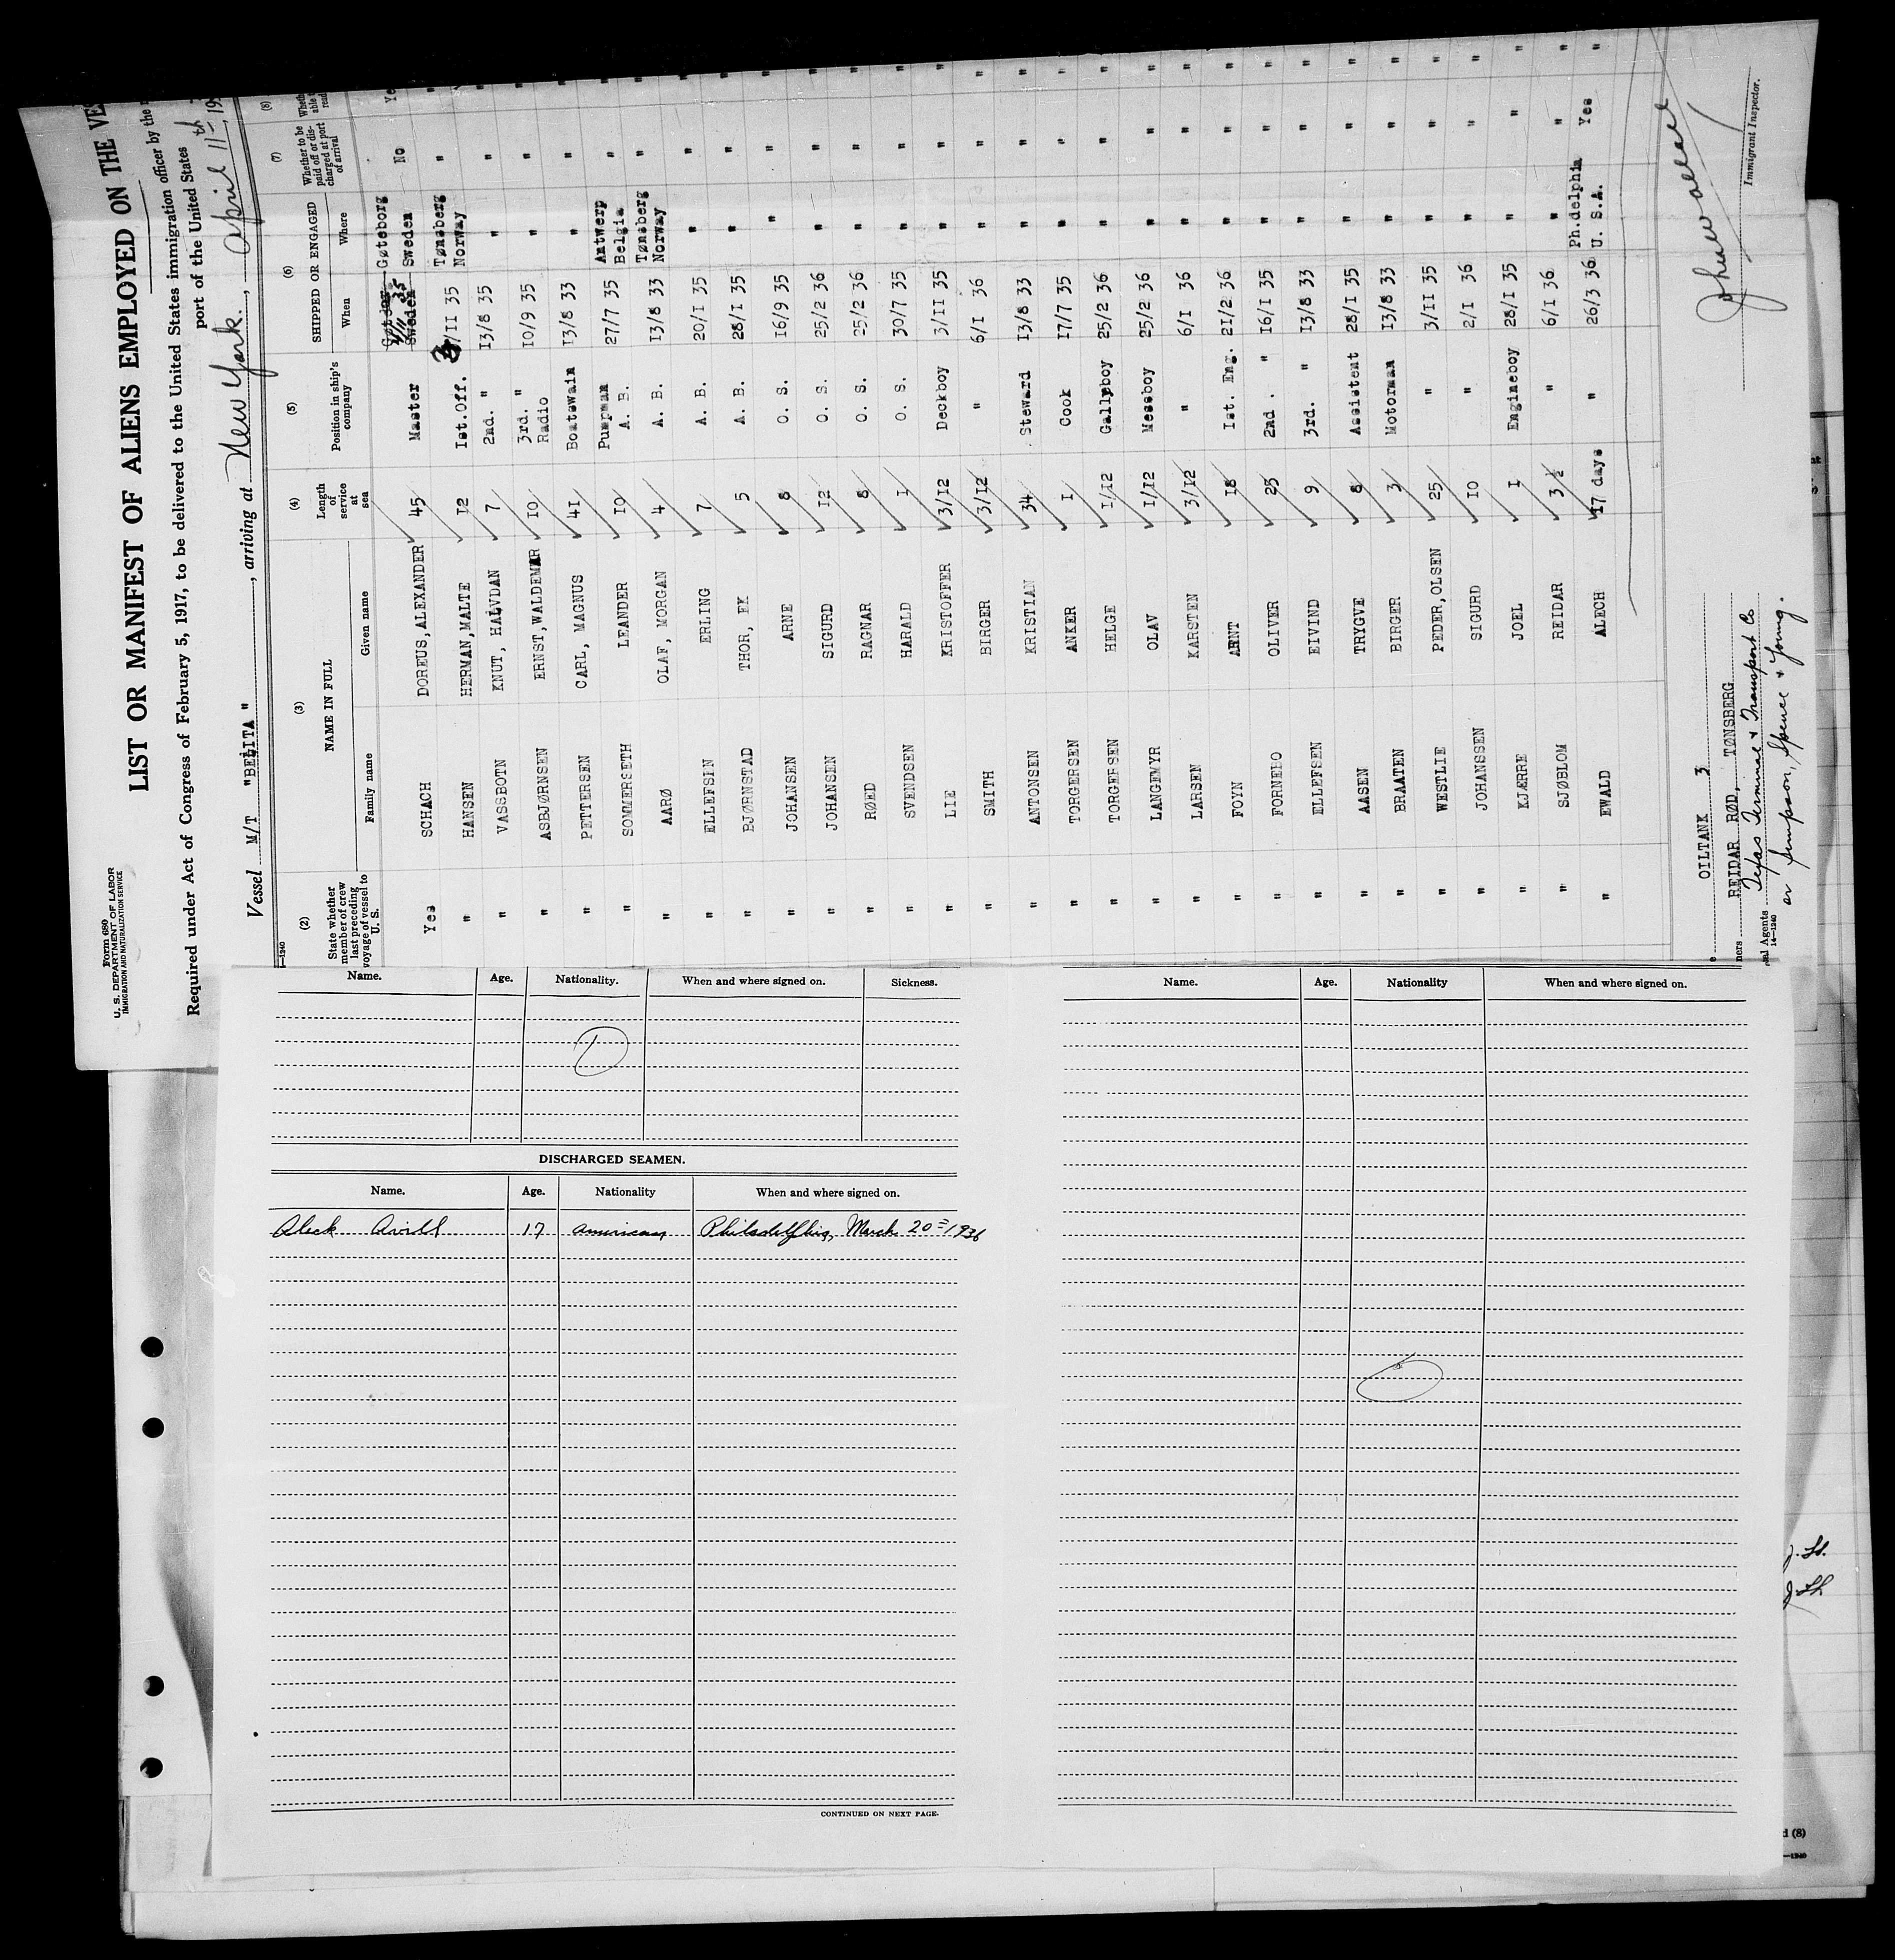 Form 680
U. S. DEPARTMENT OF LABOR
IMMIGRATION AND NATURALIZATION SERVICE
LIST OR MANIFEST OF ALIENS EMPLOYED ON THE VES
Required under Act of Congress of February 5, 1917, to be delivered to the United States immigration officer by the
port of the United States
Vessel M/T "BELITA", arriving at New York., April 11th, 19
(2) State whether member of crew last preceding voyage of vessel to U. S.
(3) NAME IN FULL
Family name Given name
(4) Length of service at sea
(5) Position in ship's company
(6) SHIPPED OR ENGAGED
When Where
(7) Whether to be paid off or discharged at port of arrival
(8)
Yes SCHACH DOREUS, ALEXANDER 45 Master 35 Gøteborg Sweden No Ye
" HANSEN HERMAN, MALTE 12 Ist.Off. /11 35 Tønsberg Norway " "
" VASSBOTN KNUT, HALVDAN 7 2nd. " 13/8 35 " " "
" ASBJØRNSEN ERNST, WALDEMAR 10 3rd. " Radio 10/9 35 " " "
" PETTERSEN CARL, MAGNUS 41 Boatswain 13/8 33 " " "
" SOMMERSETH LEANDER 10 Pumpman A. B. 27/7 35 Antwerp Belgia " "
" AARØ OLAF, MORGAN 4 A. B. 13/8 33 Tønsberg Norway " "
" ELLEFSIN ERLING 7 A. B. 20/I 35 " " "
" BJØRNSTAD THOR, EK 5 A. B. 28/I 35 " " "
" JOHANSEN ARNE 8 O. S. 16/9 35 " " "
" JOHANSEN SIGURD 12 O. S. 25/2 36 " " "
" RØED RAGNAR 8 O. S. 25/2 36 " " "
" SVENDSEN HARALD 1 O. S. 30/7 35 " " "
" LIE KRISTOFFER 3/12 Deckboy 3/II 35 " " "
" SMITH BIRGER 3/12 " 6/I 36 " " "
" ANTONSEN KRISTIAN 34 Steward 13/8 33 " " "
" TORGERSEN ANKER 1 Cook 17/7 35 " " "
" TORGERSEN HELGE 1/12 Gallyboy 25/2 36 " " "
" LANGEMYR OLAV 1/12 Messboy 25/2 36 " " "
" LARSEN KARSTEN 3/12 " 6/I 36 " " "
" FOYN ARNT 18 Ist. Eng. 21/2 36 " " "
" FORNEBO OLIVER 25 2nd. " 16/I 35 " " "
" ELLEFSEN EIVIND 9 3rd. " 13/8 33 " " "
" AASEN TRYGVE 8 Assistent 28/I 35 " " "
" BRAATEN BIRGER 3 Motorman 13/8 33 " " "
" WESTLIE PEDER, OLSEN 25 " 3/II 35 " " "
" JOHANSSEN SIGURD 10 " 2/I 36 " " "
" KJÆRRE JOEL 1 Engineboy 28/I 35 " " "
" SJØBLOM REIDAR 3 ½ " 6/I 36 " " "
" EWALD ALECH 17 days " 26/3 36 Ph.delphia U. S. A. Yes "
OILTANK 3
REIDAR RØD, TØNSBERG
Texas Terminal & Transport Co
or Simpson, Spence & Young.
Agents
14—1240
Immigrant Inspector.
Name. Age. Nationality. When and where signed on. Sickness.
1
DISCHARGED SEAMEN.
Name. Age. Nationality When and where signed on.
Aleck Avild 17 American Philadelphia, March 20 = 1936
CONTINUED ON NEXT PAGE.
Name. Age. Nationality When and where signed on.
(8)